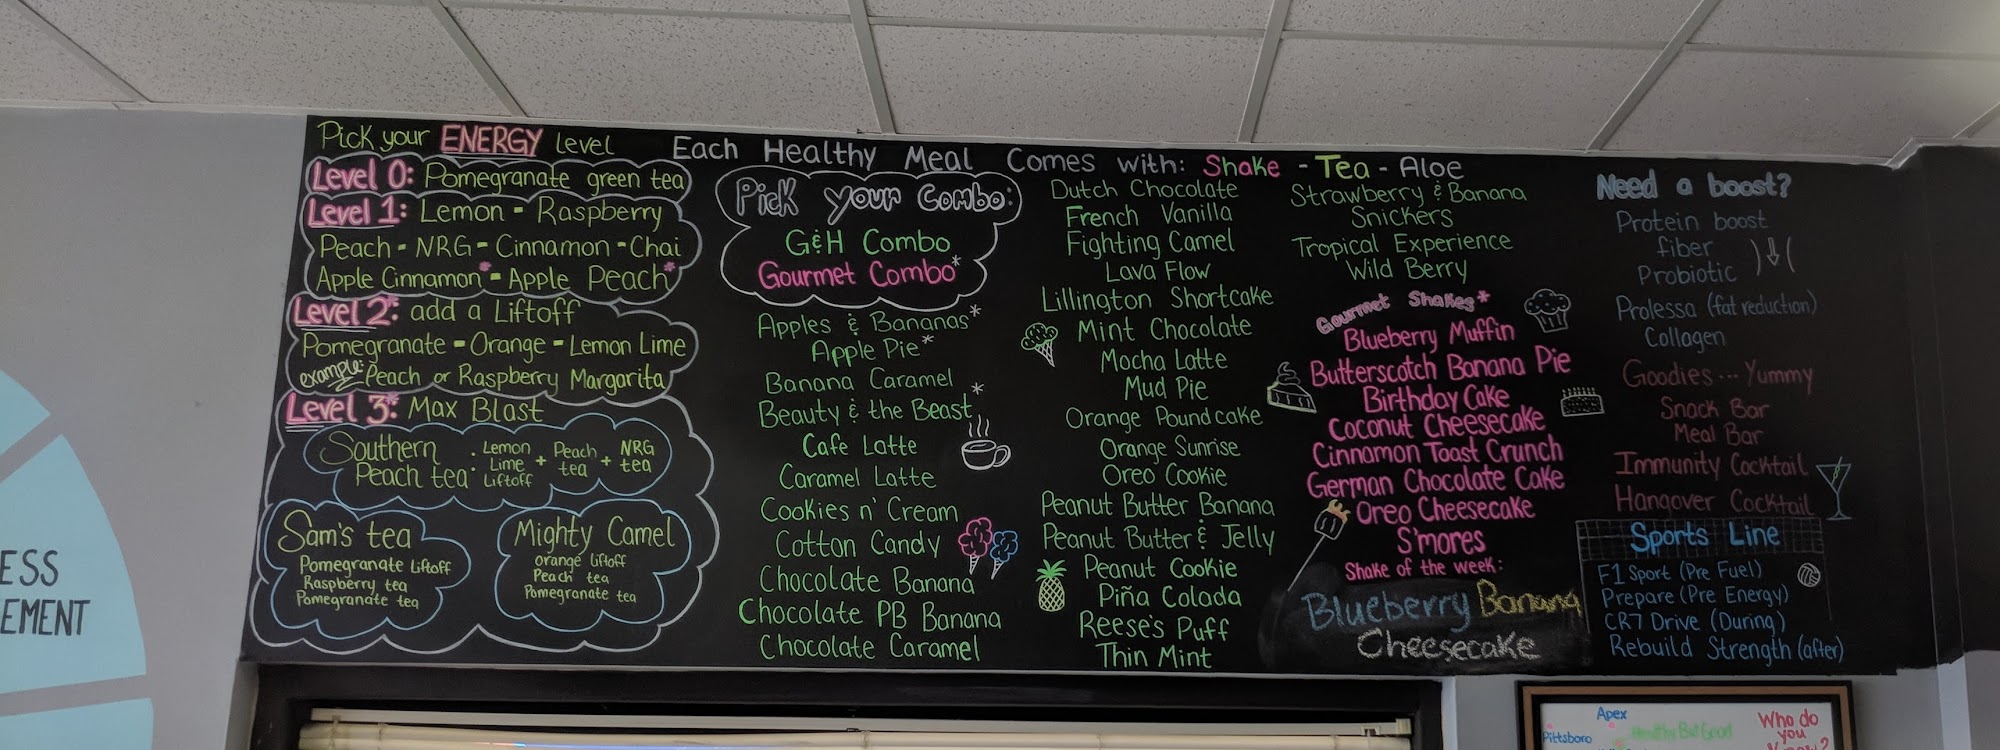 Pick your ENERGY level
Level 0: Pomegranate green tea
Level 1: Lemon - Raspberry
Peach - NRG - Cinnamon - Chai
Apple Cinnamon* - Apple Peach*
Level 2: add a Liftoff
Pomegranate - Orange - Lemon Lime
example: Peach or Raspberry Margarita
Level 3: Max Blast
Southern Peach tea: Lemon Lime Liftoff + Peach tea + NRG tea
Sam's tea
Pomegranate Liftoff
Raspberry tea
Pomegranate tea
Mighty Camel
orange liftoff
Peach tea
Pomegranate tea
Each Healthy Meal Comes with: Shake - Tea - Aloe
Pick your Combo:
G&H Combo
Gourmet Combo*
Apples & Bananas*
Apple Pie*
Banana Caramel
Beauty & the Beast*
Cafe Latte
Caramel Latte
Cookies n' Cream
Cotton Candy
Chocolate Banana
Chocolate PB Banana
Chocolate Caramel
Dutch Chocolate
French Vanilla
Fighting Camel
Lava Flow
Lillington Shortcake
Mint Chocolate
Mocha Latte
Mud Pie
Orange Poundcake
Orange Sunrise
Oreo Cookie
Peanut Butter Banana
Peanut Butter & Jelly
Peanut Cookie
Piña Colada
Reese's Puff
Thin Mint
Strawberry & Banana
Snickers
Tropical Experience
Wild Berry
Gourmet Shakes*
Blueberry Muffin
Butterscotch Banana Pie
Birthday Cake
Coconut Cheesecake
Cinnamon Toast Crunch
German Chocolate Cake
Oreo Cheesecake
S'mores
Shake of the week:
Blueberry Banana
Cheesecake
Need a boost?
Protein boost
fiber
Probiotic
Prolessa (fat reduction)
Collagen
Goodies... Yummy
Snack Bar
Meal Bar
Immunity Cocktail
Hangover Cocktail
Sports Line
F1 Sport (Pre Fuel)
Prepare (Pre Energy)
CR7 Drive (During)
Rebuild Strength (after)
ESS
EMENT
Apex
Pittsboro
Healthy But Good
Who do
you